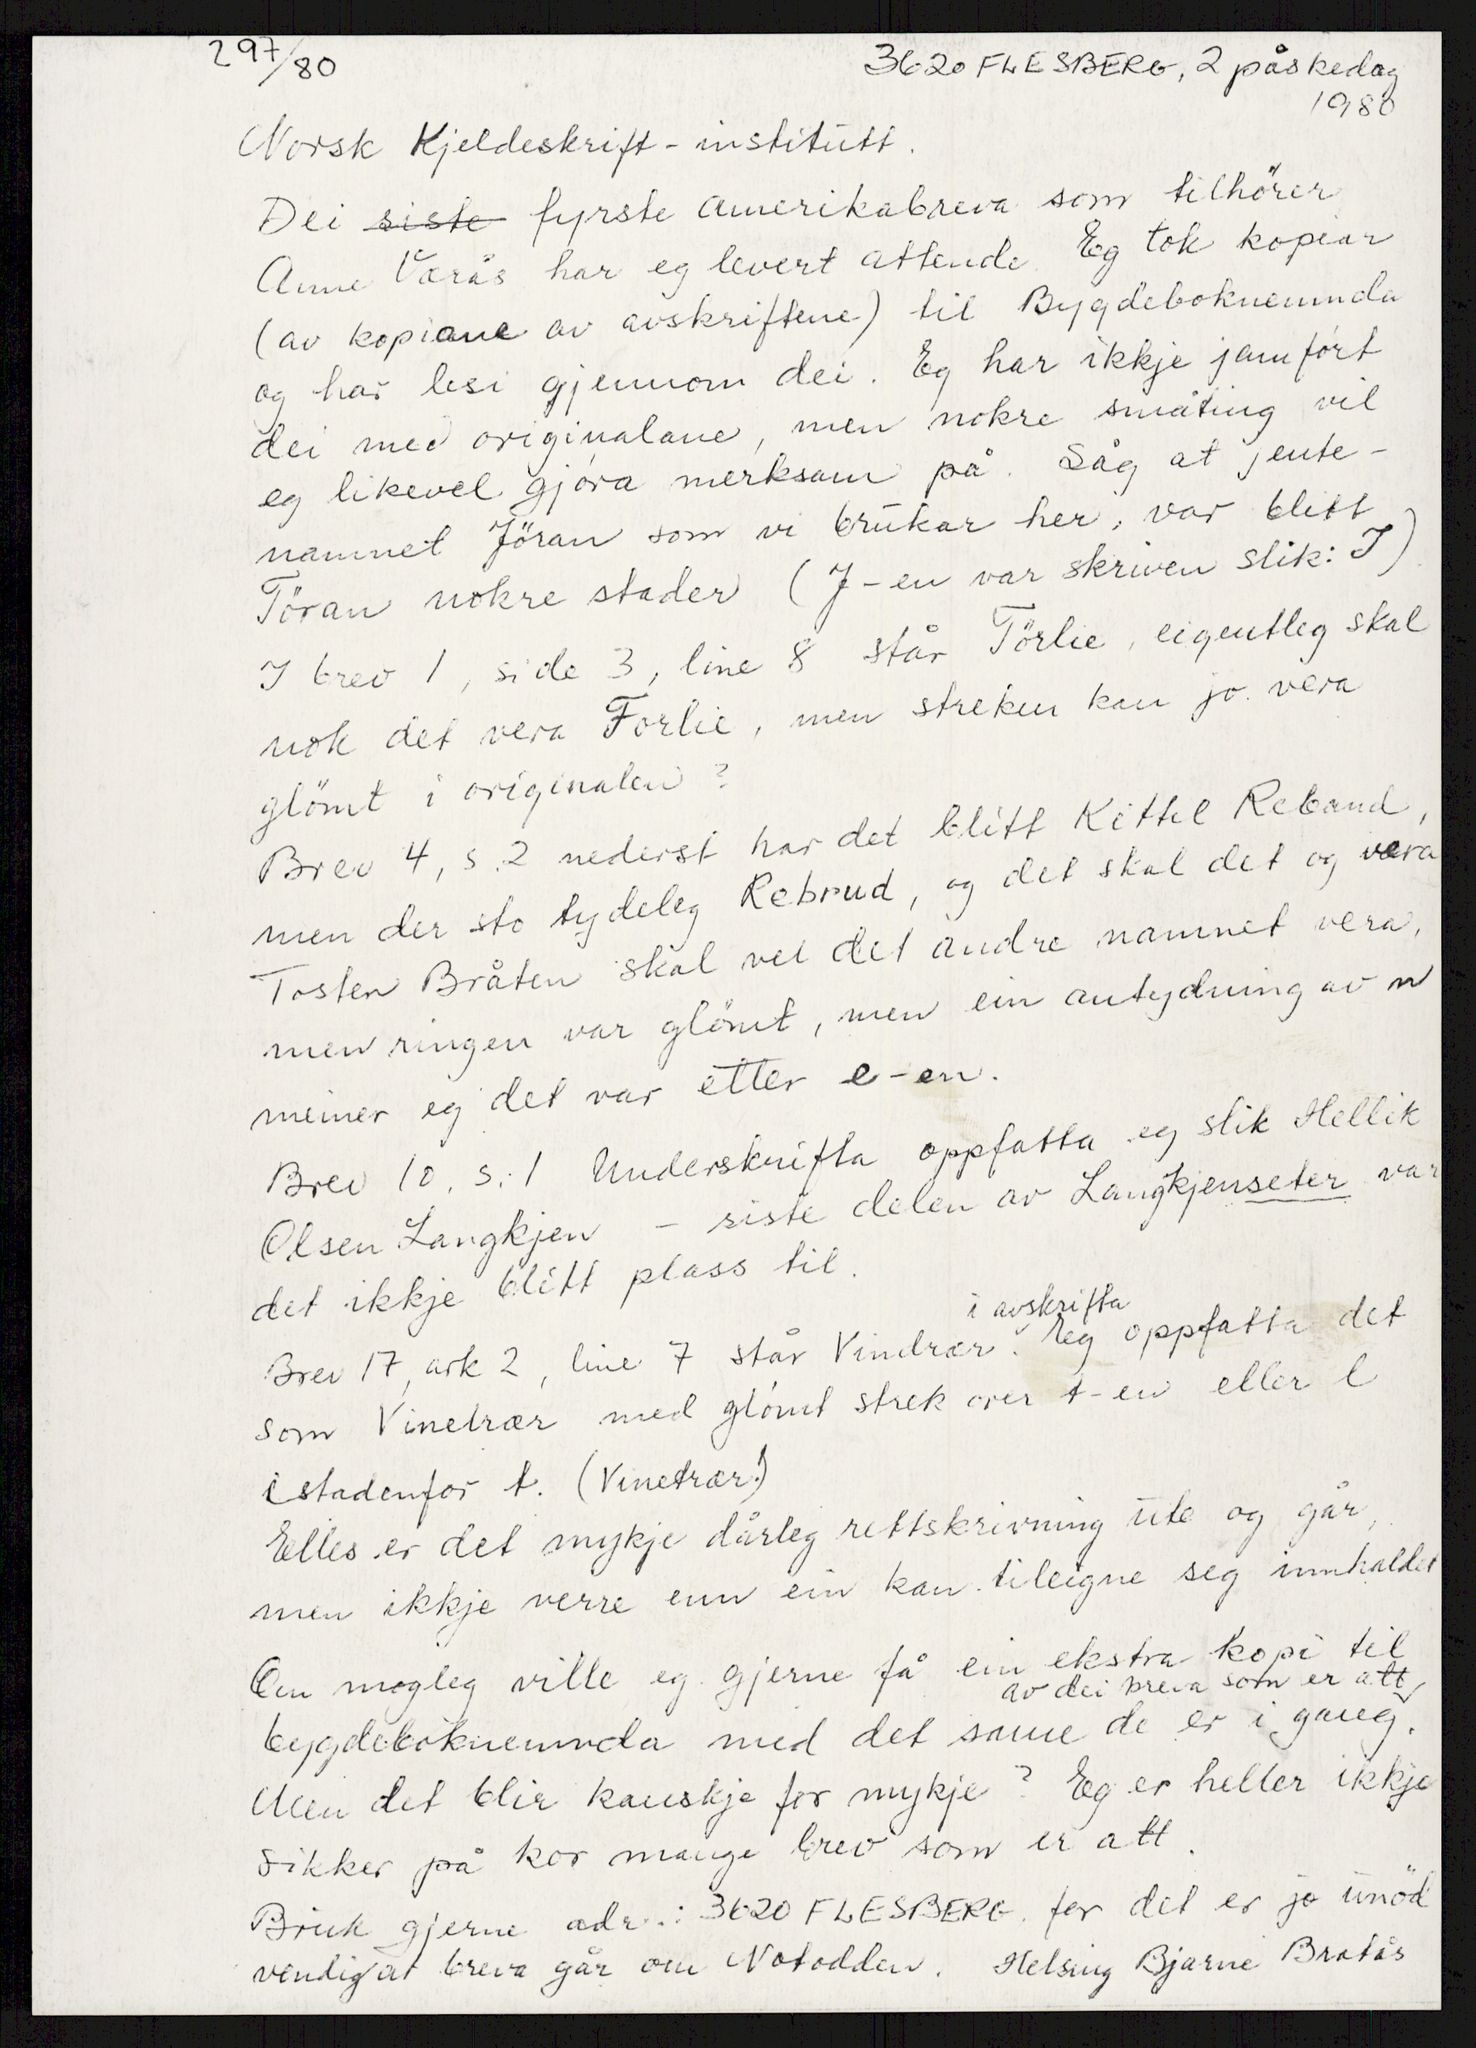 297/80
3620 FLESBERG, 2 påskedag
1980
Norsk Kjeldeskrift-institutt.
Dei siste fyrste Amerikabreva som tilhörer
Anne Værås har eg levert attende. Eg tok kopiar
(av kopiane av avskriftene) til Bygdeboknemnda
og har lesi gjennom dei. Eg har ikkje jamført
dei med originalane, men nokre småting vil
eg likevel gjøra merksam på. Såg at jente-
namnet Jöran som vi brukar her, var blitt
Töran nokre stader (J-en var skriven slik: J)
I brev 1, side 3, line 8 står Törlie, eigentleg skal
nok det vera Forlie, men streken kan jo vera
glömt i originalen?
Brev 4, s. 2 nederst har det blitt Kittel Reband,
men der sto tydeleg Rebrud, og det skal det og vera
Tosten Bråten skal vel det andre namnet vera,
men ringen var glömt, men ein antydning av n
meiner eg det var etter e-en.
Brev 10, s. 1 Underskrifta oppfatta eg slik Hellik
Olsen Langkjen - siste delen av Langkjenseter var
det ikkje blitt plass til.
i avskrifta
Brev 17, ark 2, line 7 står Vindrær. Eg oppfatta det
som Vinetrær med glömt strek over t-en eller l
istadenfor t. (Vinetrær!)
Elles er det mykje dårleg rettskrivning ute og går,
men ikkje verre enn ein kan tileigne seg innhaldet
Om mogleg ville eg gjerne få ein ekstra kopi til
av dei breva som er att
bygdeboknemnda med det same de er i gang.
Men det blir kanskje for mykje? Eg er heller ikkje
sikker på kor mange brev som er att.
Bruk gjerne adr.: 3620 FLESBERG. for det er jo unöd
vendig at breva går om Notodden. Helsing Bjarne Bratås